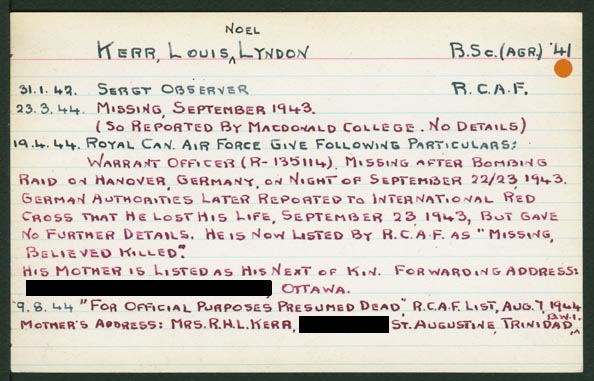 NOEL
KERR, LOUIS, LYNDON B.Sc.(AGR.) '41
31.1.42. SERGT OBSERVER R.C.A.F.
23.3.44. MISSING, SEPTEMBER 1943.
(SO REPORTED BY MACDONALD COLLEGE. NO DETAILS)
19.4.44. ROYAL CAN. AIR FORCE GIVE FOLLOWING PARTICULARS:
WARRANT OFFICER (R-135114). MISSING AFTER BOMBING
RAID ON HANOVER, GERMANY, ON NIGHT OF SEPTEMBER 22/23 1943.
GERMAN AUTHORITIES LATER REPORTED TO INTERNATIONAL RED
CROSS THAT HE LOST HIS LIFE, SEPTEMBER 23 1943, BUT GAVE
NO FURTHER DETAILS. HE IS NOW LISTED BY R.C.A.F. AS "MISSING,
BELIEVED KILLED".
HIS MOTHER IS LISTED AS HIS NEXT OF KIN. FORWARDING ADDRESS:
OTTAWA.
9.8.44 "FOR OFFICIAL PURPOSES PRESUMED DEAD", R.C.A.F. LIST, AUG. 7, 1944
MOTHER'S ADDRESS: MRS. R.H.L. KERR, ST. AUGUSTINE, TRINIDAD, B.W.I.